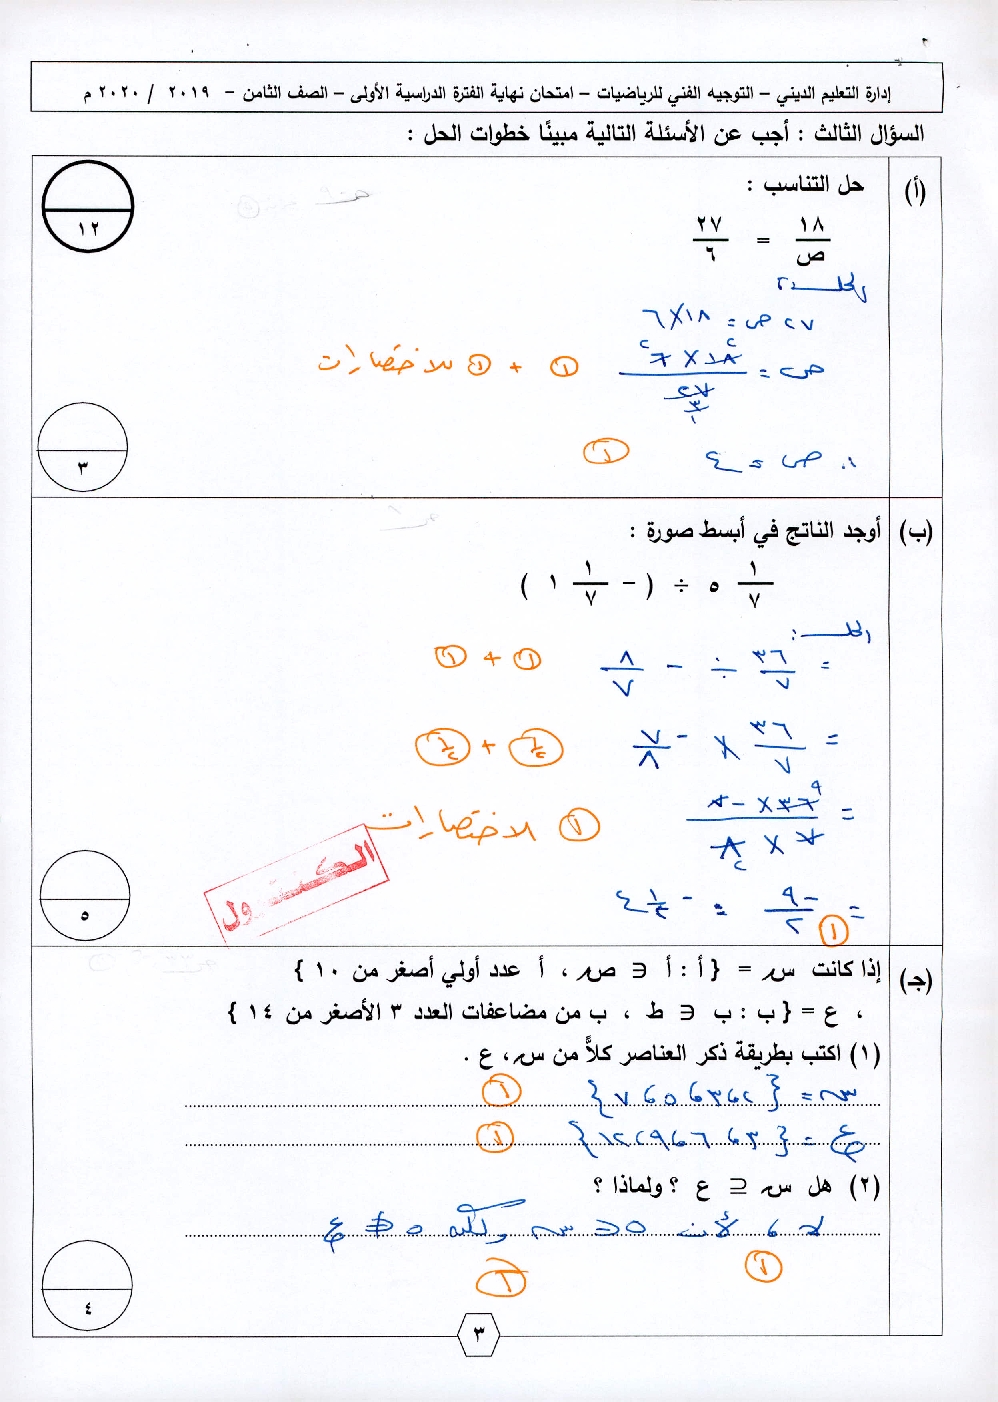 إدارة التعليم الديني – التوجيه الفني للرياضيات – امتحان نهاية الفترة الدراسية الأولى – الصف الثامن – ٢٠١٩ / ٢٠٢٠ م
السؤال الثالث : أجب عن الأسئلة التالية مبينًا خطوات الحل :
١٢
(أ) حل التناسب :
١٨/ص = ٢٧/٦
الحل :
٢٧ ص = ١٨ × ٦
ص = ١٨ × ٦ / ٢٧ ١ + ١ للاختصارات
∴ ص = ٤ ١
٣
(ب) أوجد الناتج في أبسط صورة :
٥ ١/٧ ÷ ( – ١ ١/٧ )
الحل :
= ٣٦/٧ ÷ – ٨/٧ ١ + ١
= ٣٦/٧ × – ٧/٨ ١/٢ + ١/٢
= ٣٦ × – ٧ / ٧ × ٨ ١ الاختصارات
= – ٩/٢ = – ٤ ١/٢ ١
الكنترول
٥
(جـ) إذا كانت س = { أ : أ ∈ ص ، أ عدد أولي أصغر من ١٠ }
، ع = { ب : ب ∈ ط ، ب من مضاعفات العدد ٣ الأصغر من ١٤ }
(١) اكتب بطريقة ذكر العناصر كلاً من س ، ع .
س = { ٢ ، ٣ ، ٥ ، ٧ } ١
ع = { ٣ ، ٦ ، ٩ ، ١٢ } ١
(٢) هل س ⊆ ع ؟ ولماذا ؟
لا ، لأن ٥ ∈ س ولكنه ٥ ∉ ع
١ ١
٤
٣